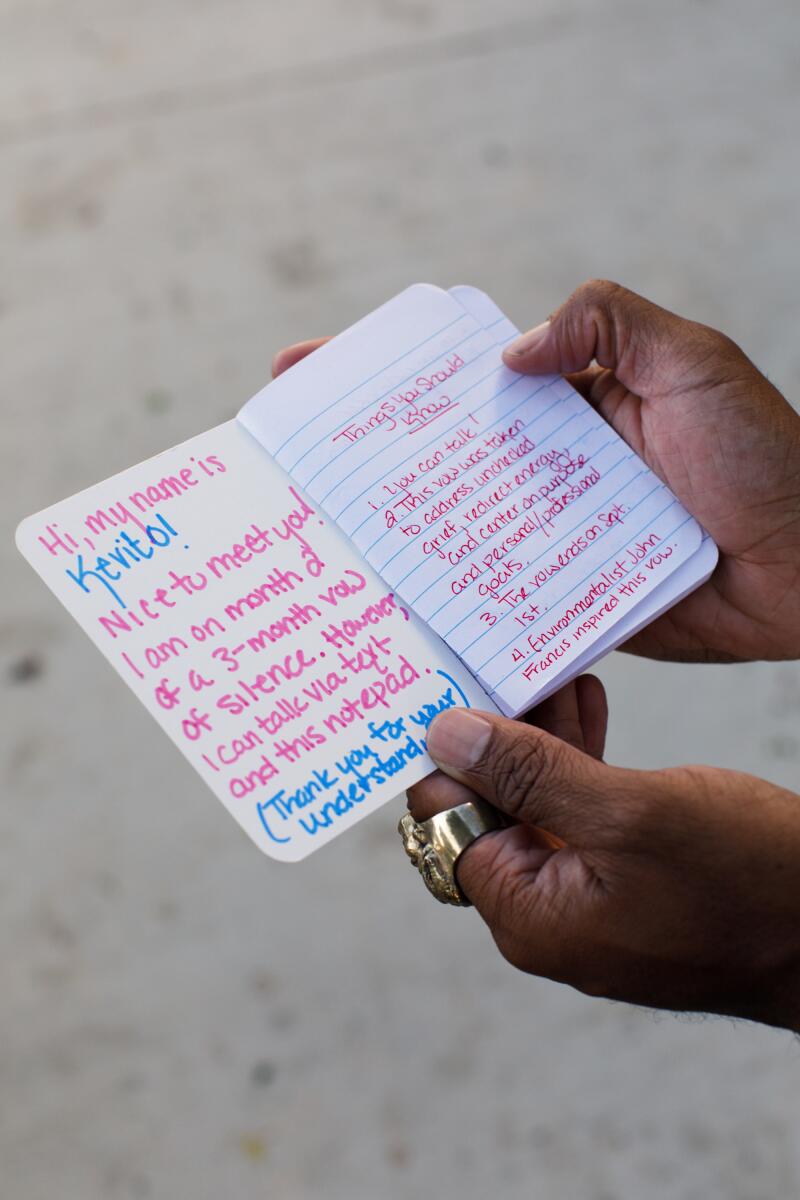 Hi, my name is
Kevito!
Nice to meet you!
I am on month 2
of a 3-month vow
of silence. However,
I can talk via text
and this notepad.
(Thank you for your
understand
Things you should
Know
1. You can talk!
2. This vow was taken
to address unchecked
grief, redirect energy,
and center on purpose
and personal/professional
goals.
3. The vow ends on Sept.
1st.
4. Environmentalist John
Francis inspired this vow.